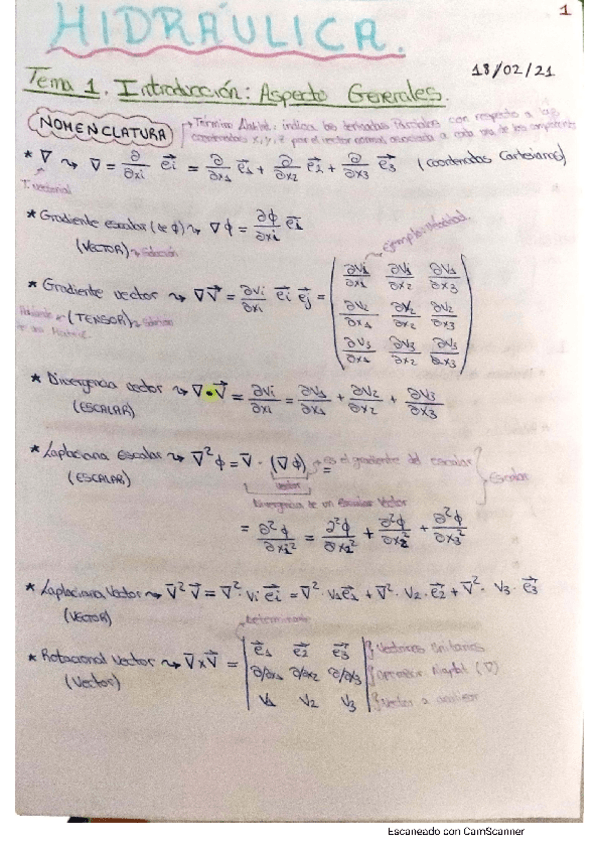 1
HIDRÁULICA.
18/02/21
Tema 1. Introducción: Aspecto Generales.
NOMENCLATURA → Término Nabla: indica las derivadas Parciales con respecto a las
coordenadas x, y, z por el vector normal asociado a cada una de las componentes
* ∇ ⇝ ∇ = ∂/∂xi e⃗i = ∂/∂x1 e⃗1 + ∂/∂x2 e⃗2 + ∂/∂x3 e⃗3 (coordenadas Cartesianas)
T. vectorial
* Gradiente escalar (de ϕ) ⇝ ∇ϕ = ∂ϕ/∂xi e⃗i
(VECTOR) → Solución
ejemplo: velocidad.
* Gradiente vector ⇝ ∇V⃗ = ∂vi/∂xi e⃗i e⃗j =
∂v1/∂x1 ∂v1/∂x2 ∂v1/∂x3
∂v2/∂x1 ∂v2/∂x2 ∂v2/∂x3
∂v3/∂x1 ∂v3/∂x2 ∂v3/∂x3
(TENSOR) → Solución
* Divergencia vector ⇝ ∇ · V⃗ = ∂vi/∂xi = ∂v1/∂x1 + ∂v2/∂x2 + ∂v3/∂x3
(ESCALAR)
* Laplaciana Escalar ⇝ ∇²ϕ = ∇ · (∇ϕ) → es el gradiente del escalar =
(ESCALAR)
vector
Escalar
Divergencia de un Vector
= ∂²ϕ/∂xi² = ∂²ϕ/∂x1² + ∂²ϕ/∂x2² + ∂²ϕ/∂x3²
* Laplaciana Vector ⇝ ∇²V⃗ = ∇² · vi e⃗i = ∇² · v1 e⃗1 + ∇² · v2 · e⃗2 + ∇² · v3 · e⃗3
(VECTOR)
Determinante
* Rotacional Vector ⇝ ∇ x V⃗ =
(Vector)
e⃗1 e⃗2 e⃗3 } Vectores Unitarios
∂/∂x1 ∂/∂x2 ∂/∂x3 } operador Nabla (∇)
V1 V2 V3 } vector a analizar
Escaneado con CamScanner